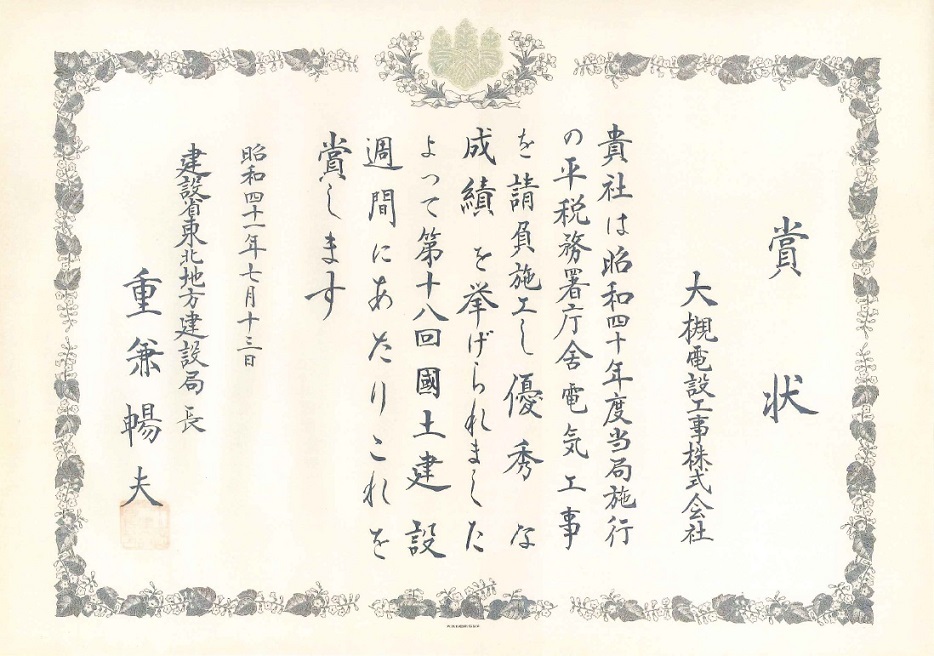 賞状
大槻電設工事株式会社
貴社は昭和四十年度当局施行
の平税務署庁舎電気工事
を請負施工し優秀な
成績を挙げられました
よって第十八回國土建設
週間にあたりこれを
賞します
昭和四十一年七月十三日
建設省東北地方建設局長
重兼暢夫